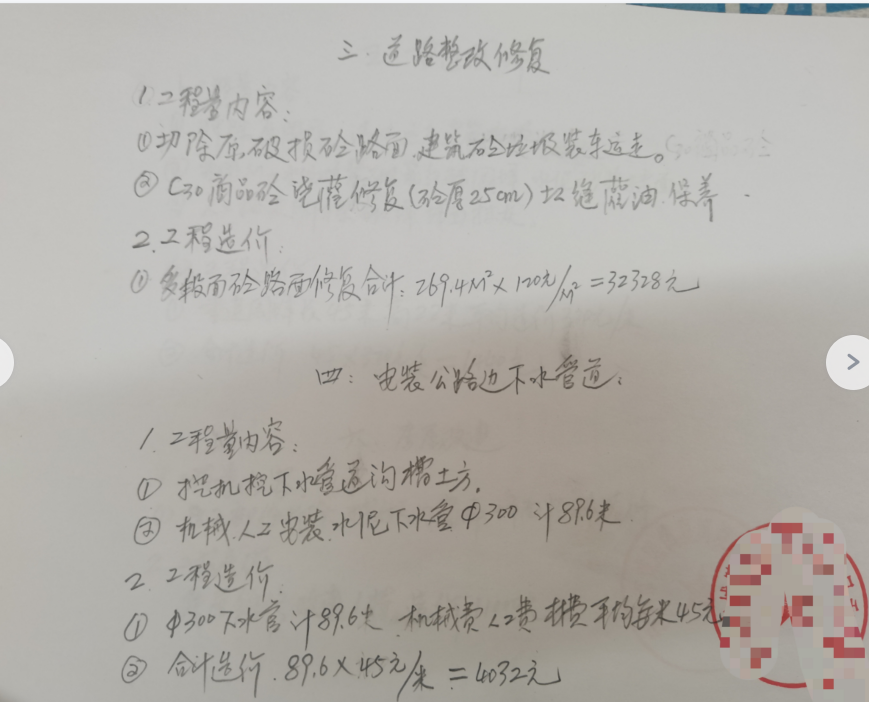 三.道路整改修复
1.工程量内容:
①切除原破损砼路面,建筑砼垃圾装车运走。
②C30商品砼浇灌修复(砼厚25cm)填缝灌油.保养.
2.工程造价
①多段面砼路面修复合计:269.4M²×120元/M²=32328元
四:安装公路边下水管道:
1.工程量内容:
①挖机挖下水管道沟槽土方.
②机械.人工安装.水泥下水管Φ300计89.6米.
2.工程造价.
①Φ300下水管计89.6米.机械费人工费材费平均每米45元.
②合计造价.89.6×45元/米=4032元